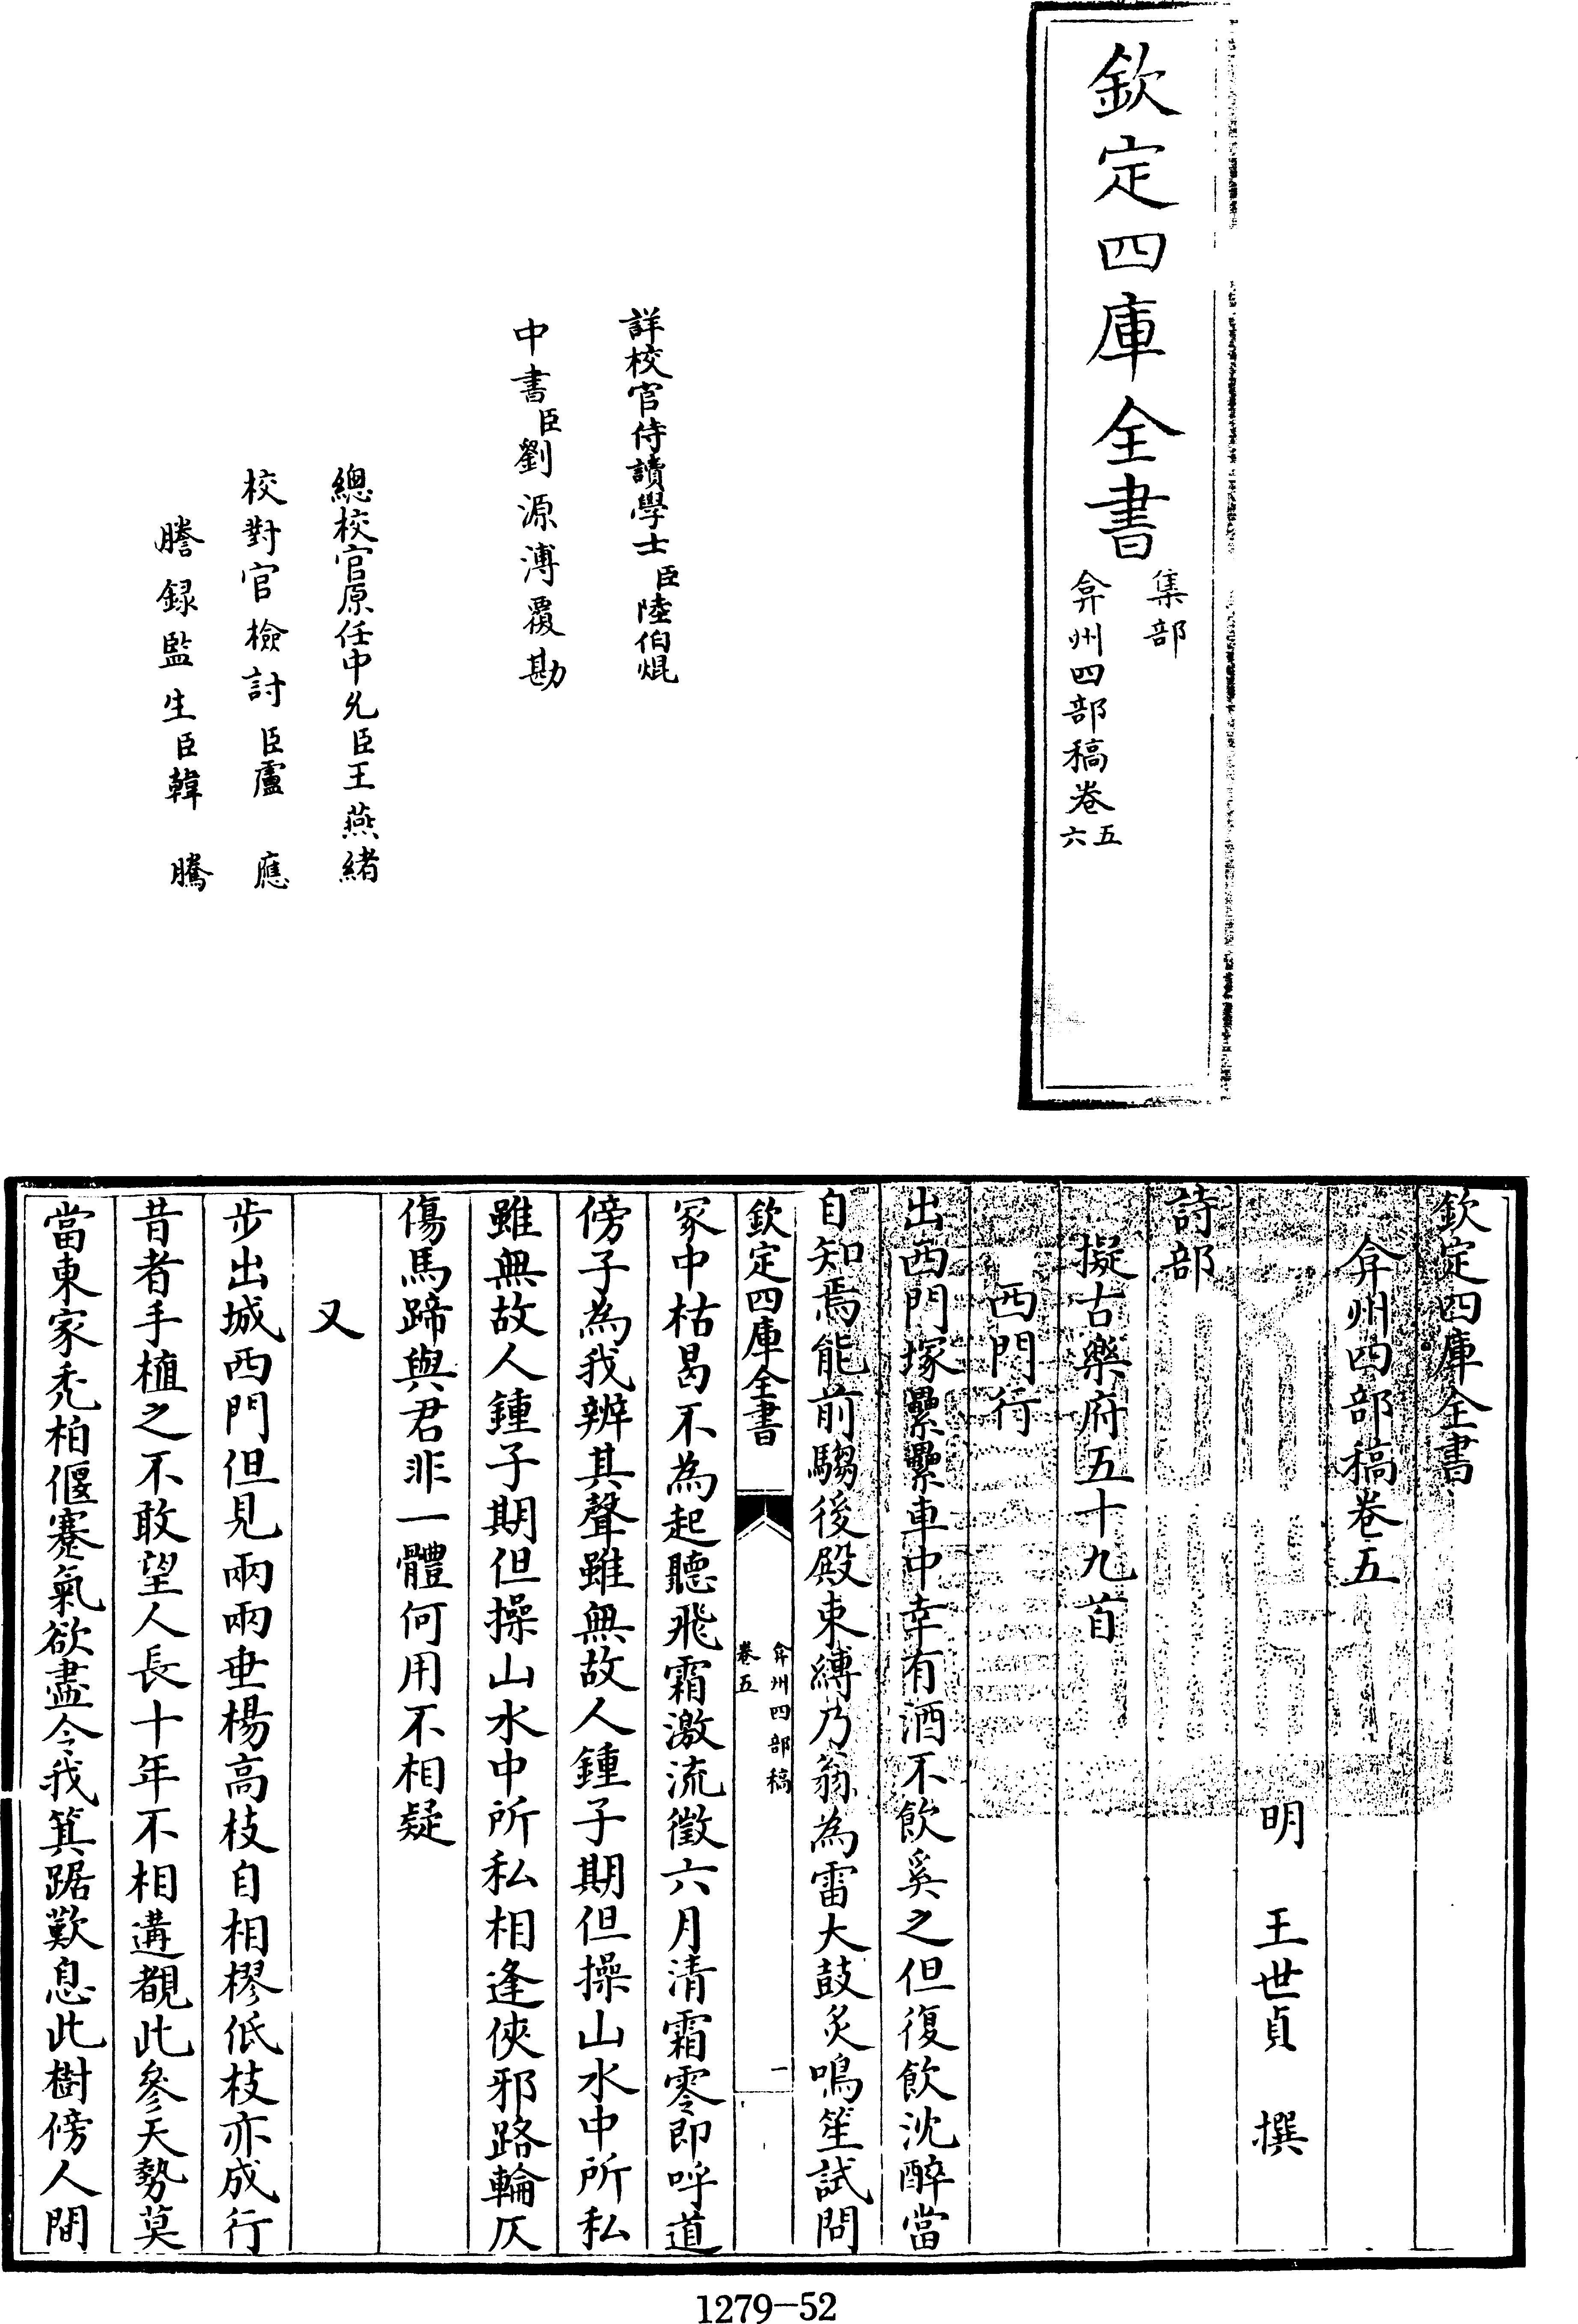 欽定四庫全書
集部
弇州四部稿卷五六
詳校官侍讀學士臣陸伯焜
中書臣劉源溥覆勘
總校官原任中允臣王燕緒
校對官檢討臣盧應
謄録監生臣韓騰
欽定四庫全書
弇州四部稿卷五
明王世貞撰
詩部
擬古樂府五十九首
西門行
出西門塚纍纍車中幸有酒不飲奚之但復飲沈醉當
自知焉能前騶後殿束縛乃翁為雷大鼓炙鳴笙試問
欽定四庫全書
弇州四部稿
卷五
一
冢中枯曷不為起聽飛霜激流徵六月清霜零即呼道
傍子為我辨其聲雖無故人鍾子期但操山水中所私
雖無故人鍾子期但操山水中所私相逢俠邪路輪仄
傷馬蹄與君非一體何用不相疑
又
步出城西門但見兩兩垂楊高枝自相樛低枝亦成行
昔者手植之不敢望人長十年不相遘覩此參天勢莫
當東家禿柏偃蹇氣欲盡今我箕踞歎息此樹傍人間
1279-52